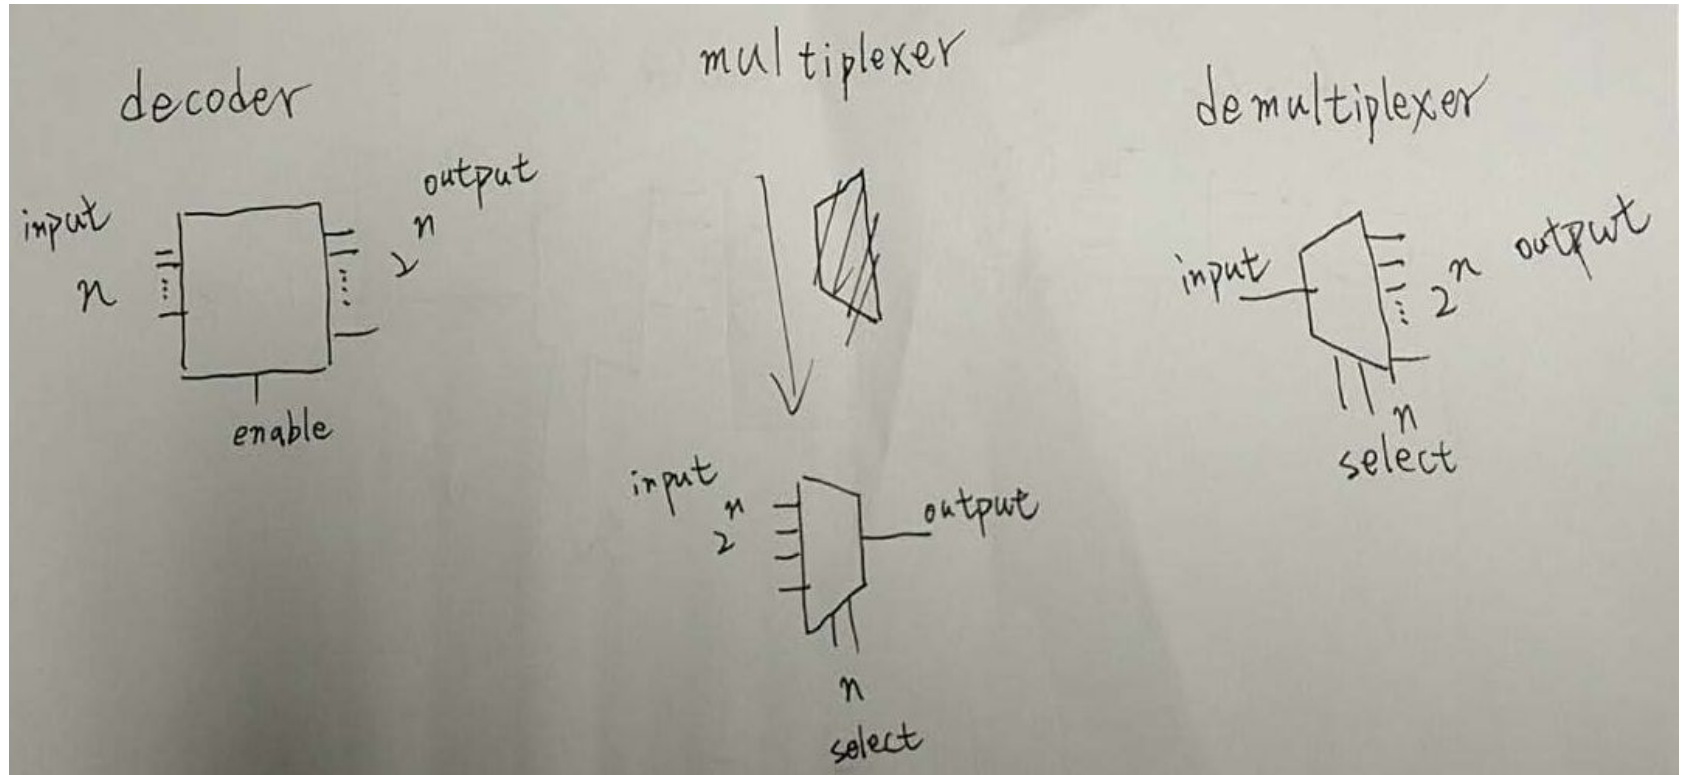 decoder
input
n
output
2^n
enable
multiplexer
input
2^n
output
n
select
demultiplexer
input
2^n output
n
select